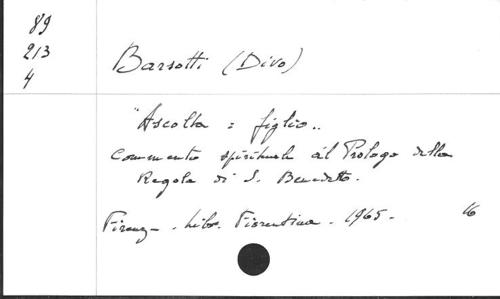 89
213
4
Barsotti (Divo)
"Ascolta = figlio..
Commento spirituale al Prologo della
Regola di S. Benedetto.
Firenze - Libr. Fiorentina - 1965 - 16